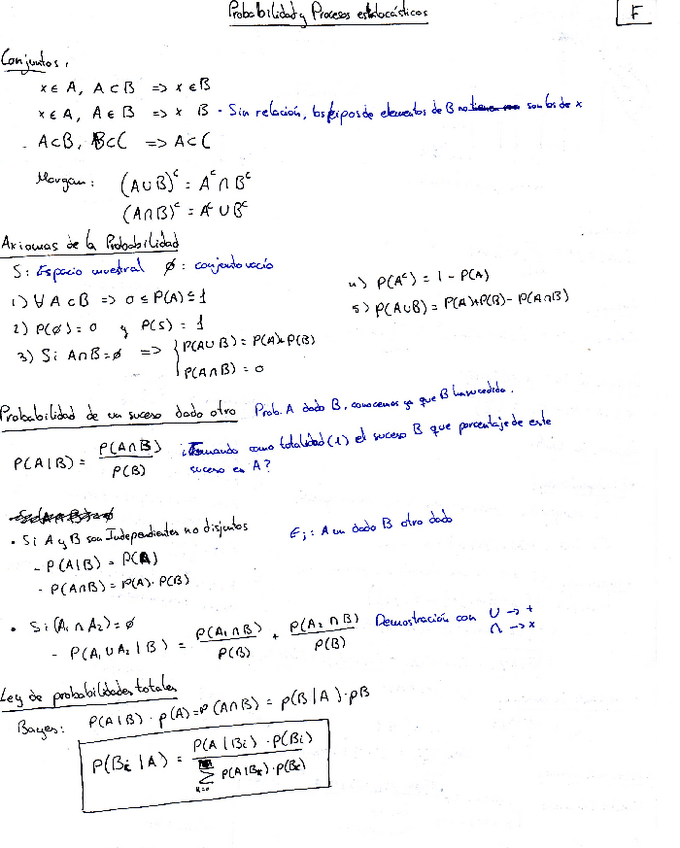 Probabilidad y Procesos estocásticos
F
Conjuntos,
x ∈ A, A ⊂ B => x ∈ B
x ∈ A, A ∈ B => x B - Sin relación, los tipos de elementos de B no son los de x
- A ⊂ B, B ⊂ C => A ⊂ C
Morgan: (A∪B)^c = A^c ∩ B^c
(A∩B)^c = A^c ∪ B^c
Axiomas de la Probabilidad
S: Espacio muestral ∅: conjunto vacío
1) ∀ A ⊂ B => 0 ≤ P(A) ≤ 1
2) P(∅) = 0 y P(S) = 1
3) Si A∩B = ∅ => { P(A∪B) = P(A)+P(B)
P(A∩B) = 0
4) P(A^c) = 1 - P(A)
5) P(A∪B) = P(A)+P(B) - P(A∩B)
Probabilidad de un suceso dado otro Prob. A dado B, conocemos ya que B ha sucedido.
P(A|B) = P(A∩B) / P(B) ¿Tomando como totalidad (1) el suceso B que porcentaje de este
suceso es A?
• Si A y B son Independientes no disjuntos Ej: A un dado B otro dado
- P(A|B) = P(A)
- P(A∩B) = P(A)·P(B)
• Si (A₁ ∩ A₂) = ∅
- P(A₁ ∪ A₂ | B) = P(A₁∩B) / P(B) + P(A₂∩B) / P(B) Demostración con ∪ -> +
∩ -> x
Ley de probabilidades totales
Bayes: P(A|B) · p(A) = P(A∩B) = p(B|A)·pB
P(Bi | A) = P(A|Bi) · P(Bi) / Σ P(A|Bk) · P(Bk)